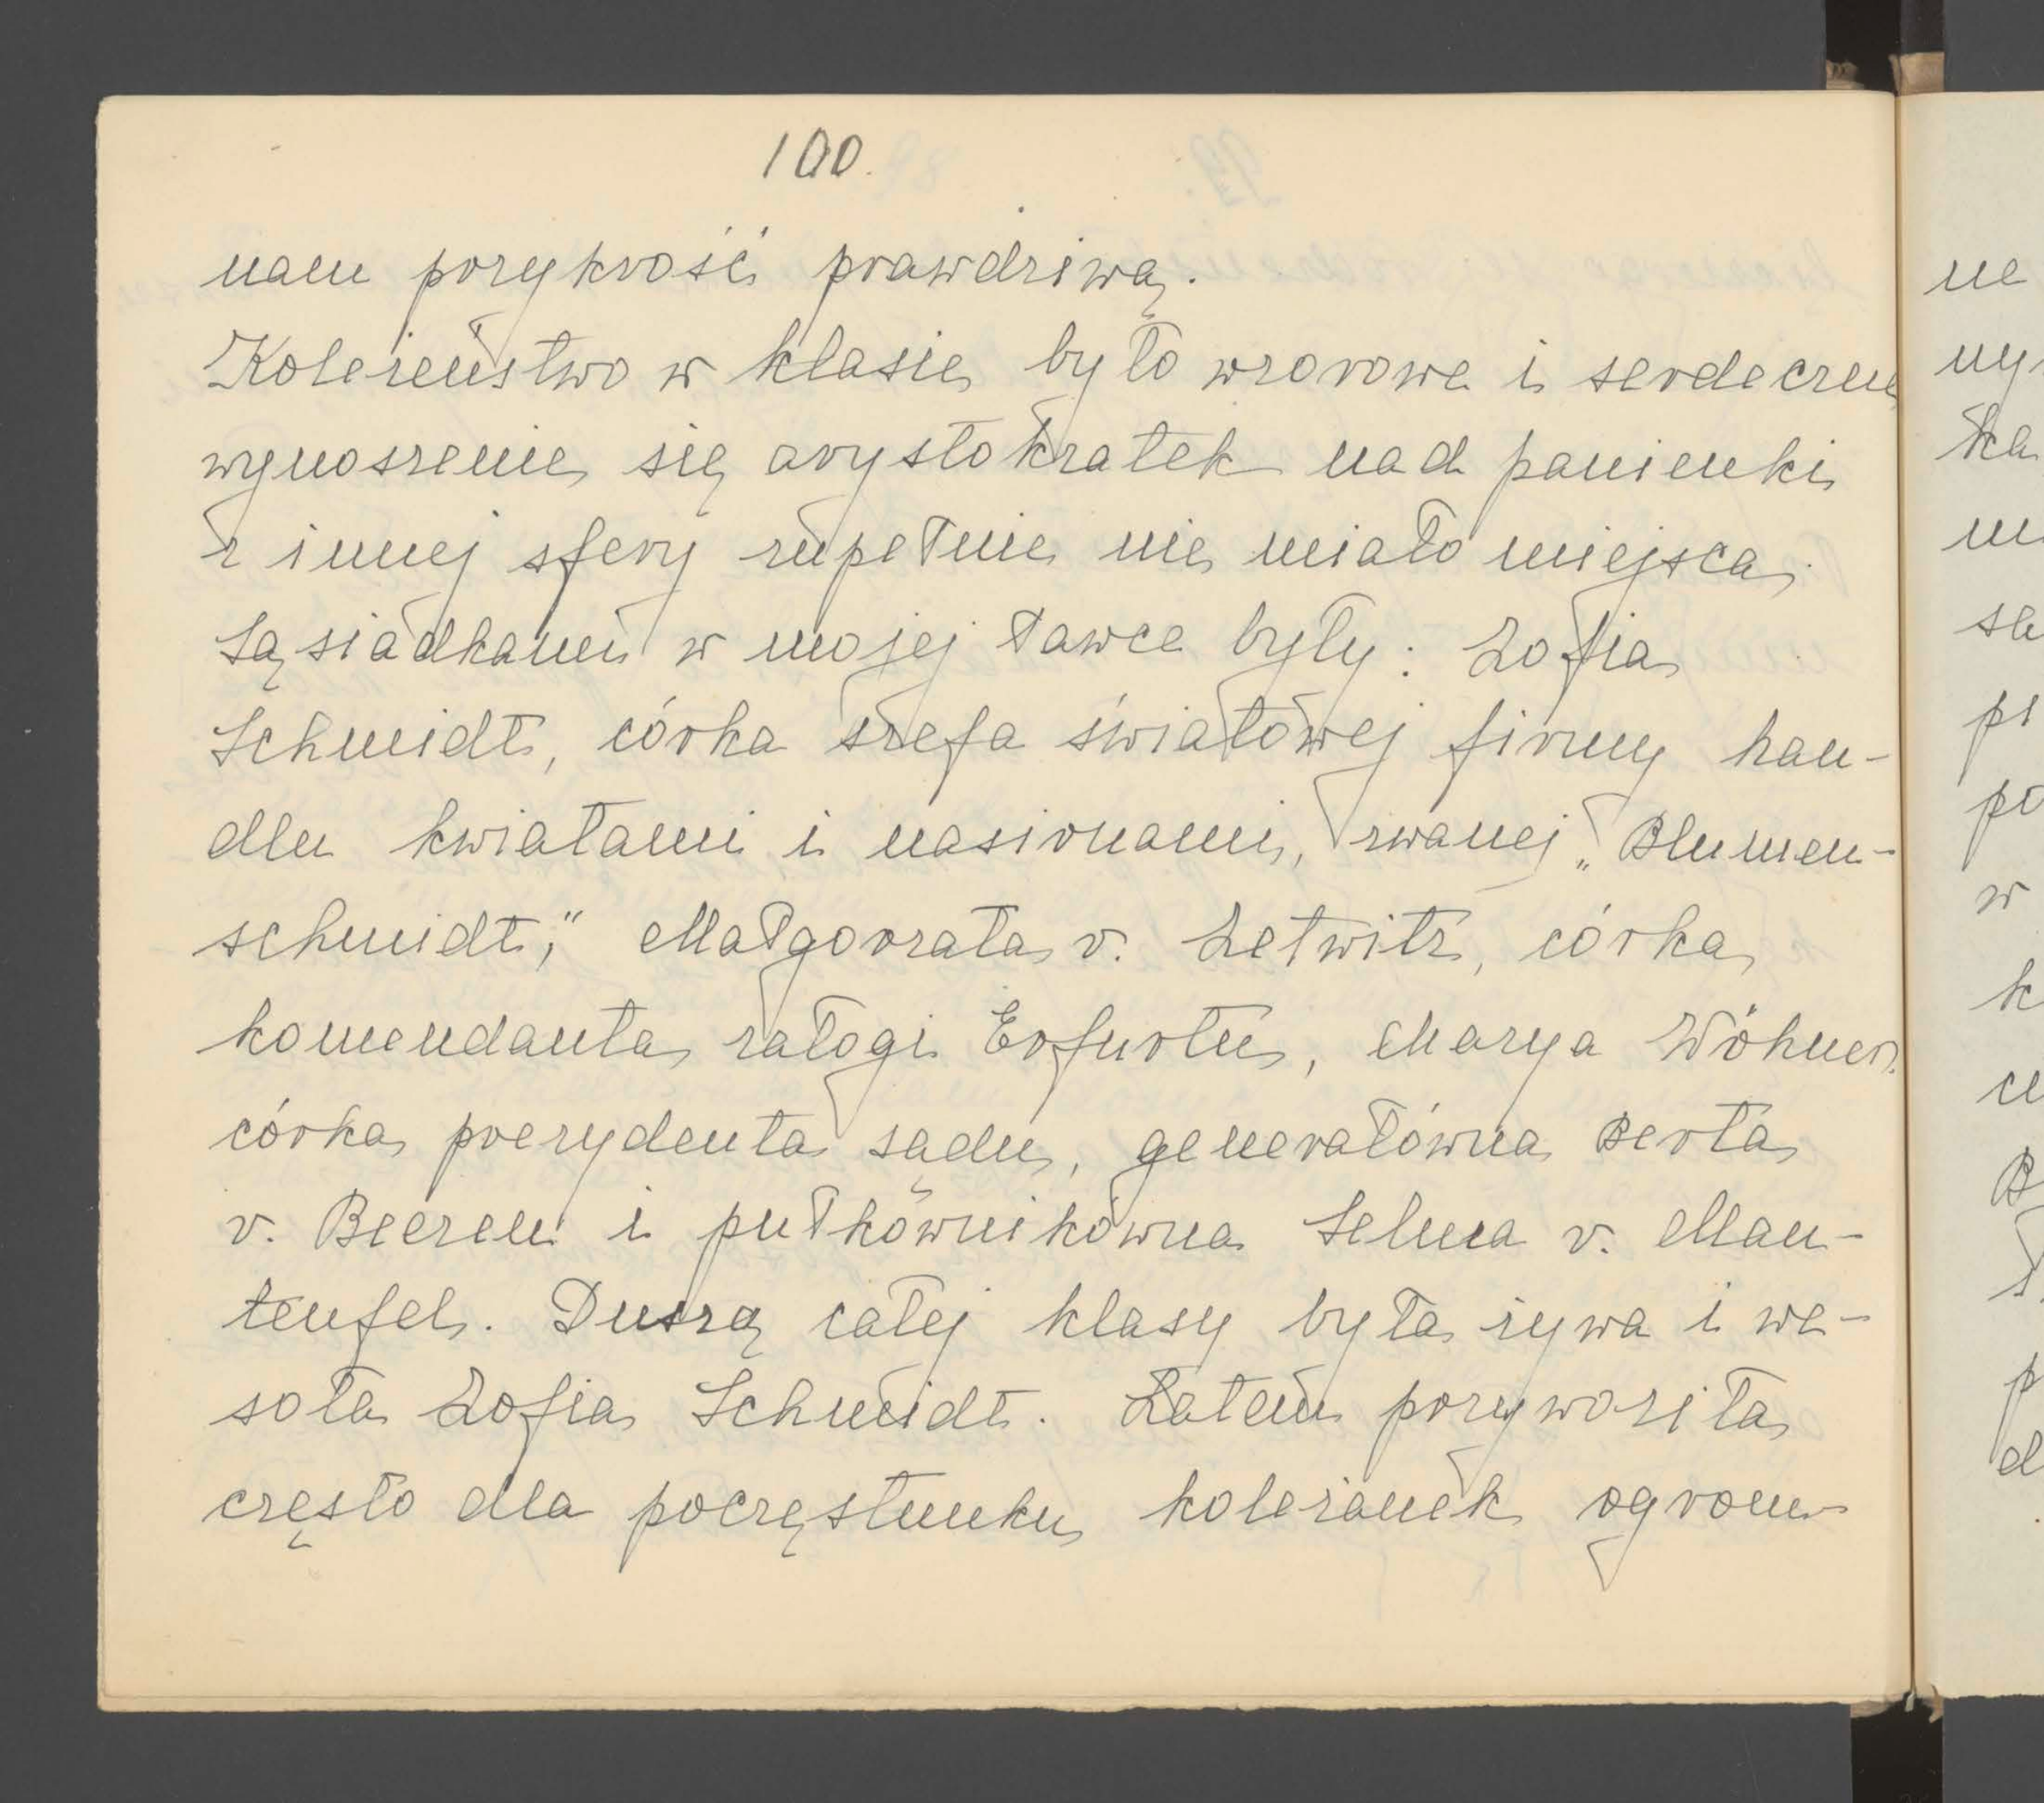 100.
nam przykrość prawdziwą.
Koleżeństwo w klasie było wzorowe i serdeczne
wynoszenie się arystokratek nad panienki
z innej sfery zupełnie nie miało miejsca.
Sąsiadkami w mojej ławce były: Zofia
Schmidt, córka szefa światowej firmy han-
dlu kwiatami i nasionami, zwanej „Blumen-
schmidt," Małgorzata v. Zetwitz, córka
komendanta załogi Erfurtu, Marya Wöhner
córka prezydenta sądu, generałówna Berta
v. Beeren i pułkównikówna Selma v. Man-
teufel. Duszą całej klasy była żywa i we-
soła Zofia Schmidt. Latem przywoziła
często dla poczęstunku koleżanek ogrom-